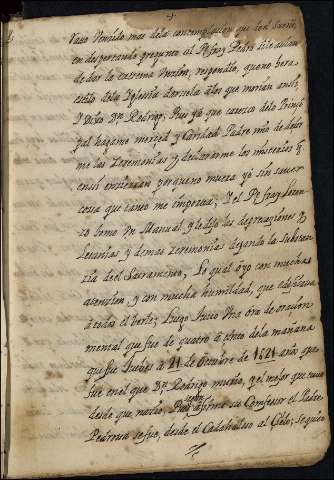 Vaso Vencido mas dela contemplacion que del sueño,
en despertando pregunto al Pe fray Pedro si le avian
de dar la extrema Uncion, respondio, que no hera
estilo dela Yglesia darsela alos que morian ansi,
Y Dixo Dn Rodrigo, Pues ya que carezco delo Principal
pal hagame merced y Caridad Padre mio de decir
me las Zeremonias y declararme los misterios q
ensi encierran porque no muera yo sin saver
cosa que tanto me importava; Y el Pe fray
zo tomo un Manual, y le dijo las deprecaciones y
Letanias y demas Zeremonias dejando la Substan
zia del Sacramento, Lo qual oyo con mucha
atencion, y con mucha humildad, que
a todos el berle; Luego tuvo una ora de oracion
mental que fue de quatro a cinco dela mañana
que fue Jueves a 21 de Octubre de 1621 años que
fue en el que Dn Rodrigo murio, y el mejor que tuvo
desde que nacio, Pues segun afirma su Confesor el Padre
Pedrosa se fue, desde el Cadahalso al Cielo; se quedo